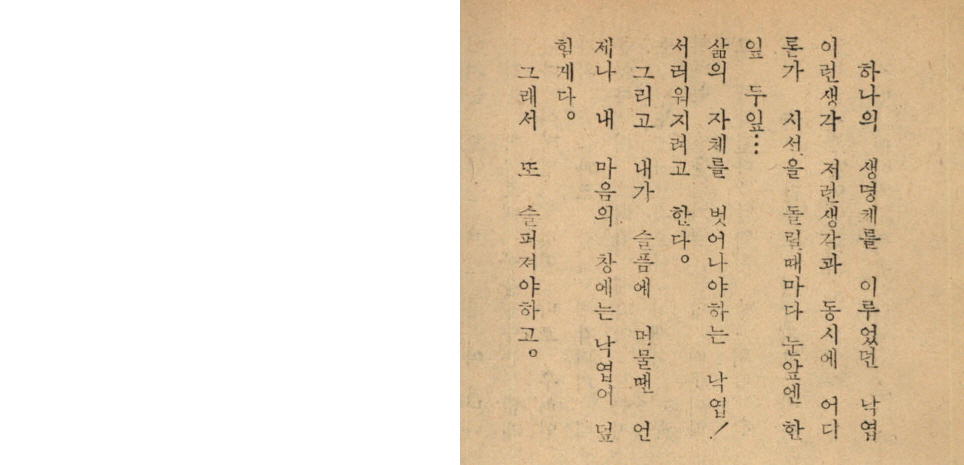 하나의 생명체를 이루었던 낙엽
이런생각 저런생각과 동시에 어디
론가 시선을 돌릴때마다 눈앞엔 한
잎 두잎…
삶의 자체를 벗어나야하는 낙엽!
서러워지려고 한다。
그리고 내가 슬픔에 머물땐 언
제나 내 마음의 창에는 낙엽이 덮
힌게다。
그래서 또 슬퍼져야하고。